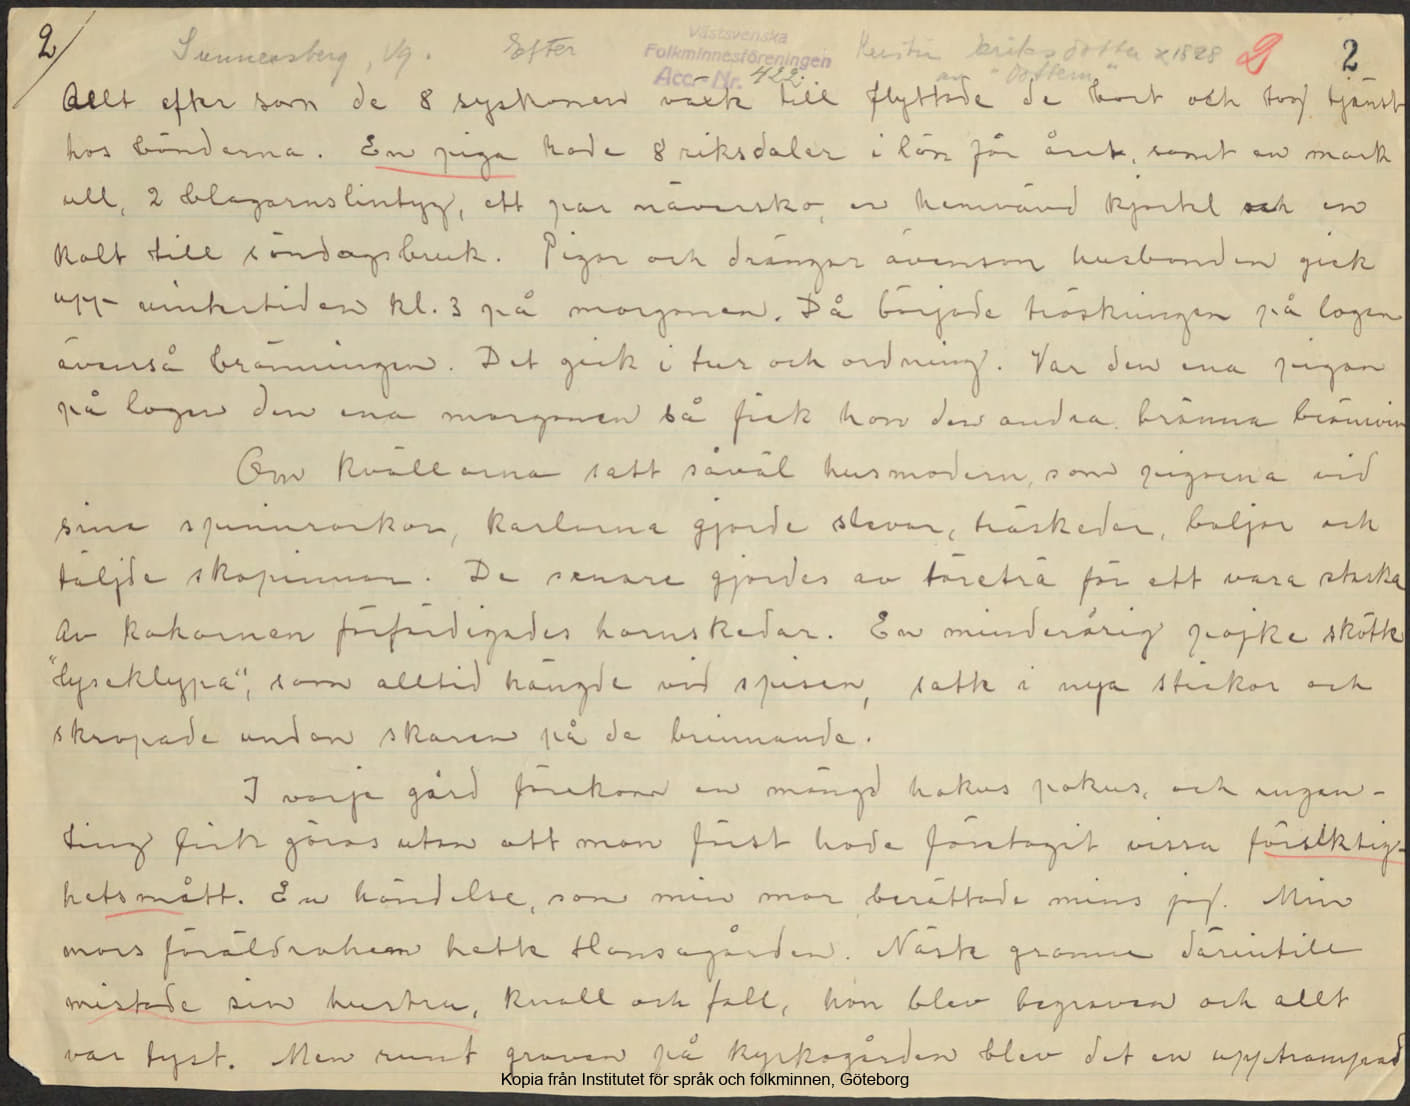 2/
Sunnersberg, Vg. Efter
Västsvenska
Folkminnesföreningen
Acc-Nr. 422.
Kerstin Eriksdotter x 1828
av "dottern"
2
2
Allt efter som de 8 syskonen växte till flyttade de bort och tog tjänst
hos bönderna. En piga hade 8 riksdaler i lön för året, samt en mark
ull, 2 blaggarnslintyg, ett par näverskor, en hemvävd kjortel och en
kolt till söndagsbruk. Pigor och drängar ävensom husbonden gick
upp vintertiden kl. 3 på morgonen. Då började tröskningen på logen
även så bränningen. Det gick i tur och ordning. Var den ena pigan
på logen den ena morgonen så fick hon den andra bränna brännvin
Om kvällarna satt såväl husmodern, som pigorna vid
sina spinnrockar, karlarna gjorde slevar, träskedar, baljor och
täljde skopinnar. De senare gjordes av töreträ för att vara starka
Av kohornen förfärdigades hornskedar. En minderårig pojke skötte
"lyseklypa", som alltid hängde vid spisen, satte i nya stickor och
skrapade undan skaren på de brinnande.
I varje gård förekom en mängd hokus pokus, och ingen-
ting fick göras utan att man först hade företagit vissa försiktig-
hetsmått. En händelse, som min mor berättade mins jag. Min
mors föräldrahem hette Hansagården. Näste granne därintill
mistade sin hustru, knall och fall, hon blev begraven och allt
var tyst. Men runt graven på kyrkogården blev det en upptrampad
Kopia från Institutet för språk och folkminnen, Göteborg